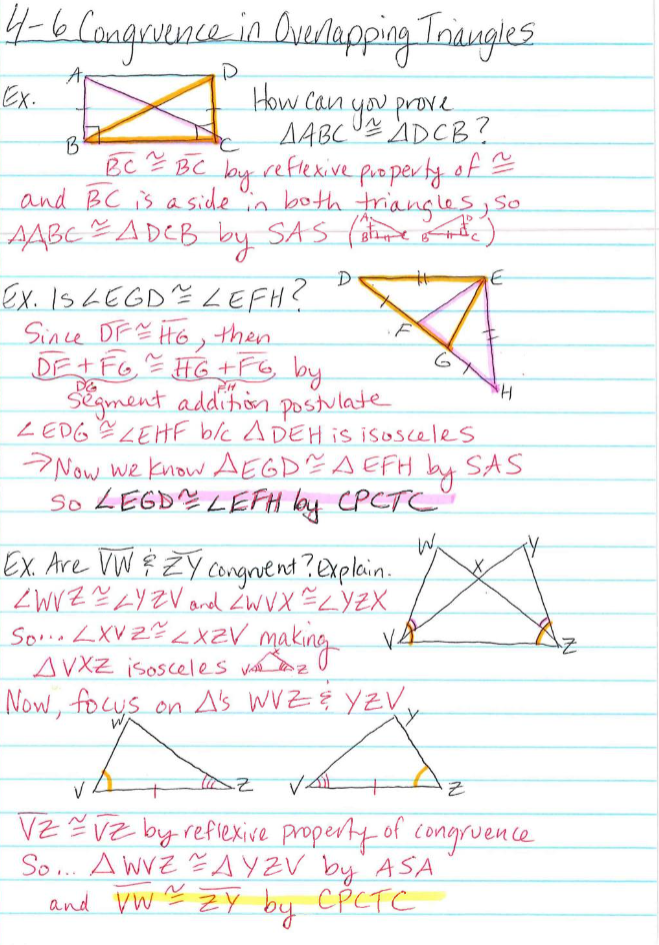 4-6 Congruence in Overlapping Triangles
A D
Ex. How can you prove
ΔABC ≅ ΔDCB?
B C
BC ≅ BC by reflexive property of ≅
and BC is a side in both triangles, so
ΔABC ≅ ΔDCB by SAS (A B C B D C)
D E
Ex. Is ∠EGD ≅ ∠EFH?
Since DF ≅ HG, then
F
DF + FG ≅ HG + FG, by
G
DG FH
H
Segment addition postulate
∠EDG ≅ ∠EHF b/c ΔDEH is isosceles
→ Now we know ΔEGD ≅ ΔEFH by SAS
So ∠EGD ≅ ∠EFH by CPCTC
W Y
Ex. Are VW & ZY congruent? Explain.
X
∠WVZ ≅ ∠YZV and ∠WVX ≅ ∠YZX
So... ∠XVZ ≅ ∠XZV making
V Z
ΔVXZ isosceles V X Z
Now, focus on Δ's WVZ & YZV
W Y
V Z V Z
VZ ≅ VZ by reflexive property of congruence
So... ΔWVZ ≅ ΔYZV by ASA
and VW ≅ ZY by CPCTC